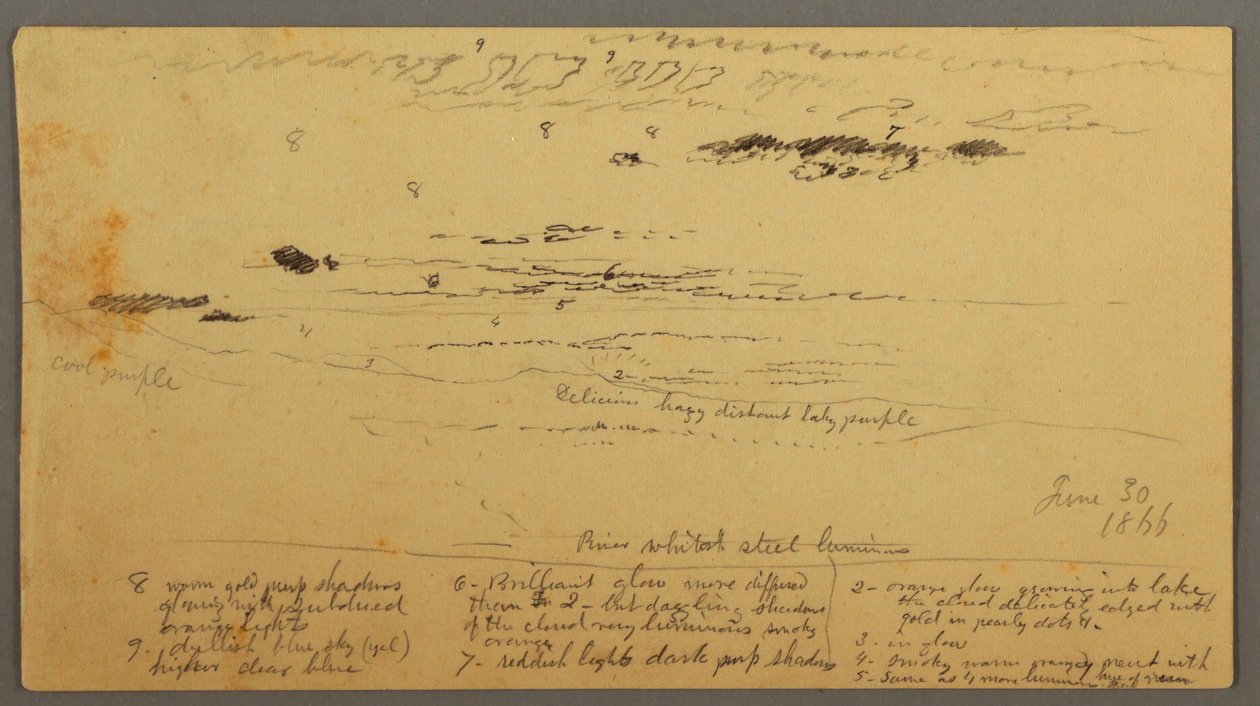 9
9
8
8
8
7
8
8
6
5
4
4
3
2
cool purple
Delicious hazy distant laky purple
June 30
1866
River whitest steel luminous
8 warm gold purp shadows
glowing with subdued
orange lights
9. dullish blue sky (yel)
higher clear blue
6 - Brilliant glow more diffused
than in 2 - but dazzling shadows
of the cloud very luminous smoky
orange
7 - reddish lights dark purp shadows
2 - orange glow into lake
the cloud delicately edged with
gold in pearly dots &.
3 - in glow
4 - smoky warm orange with
hue of
5 - Same as 4 more luminous